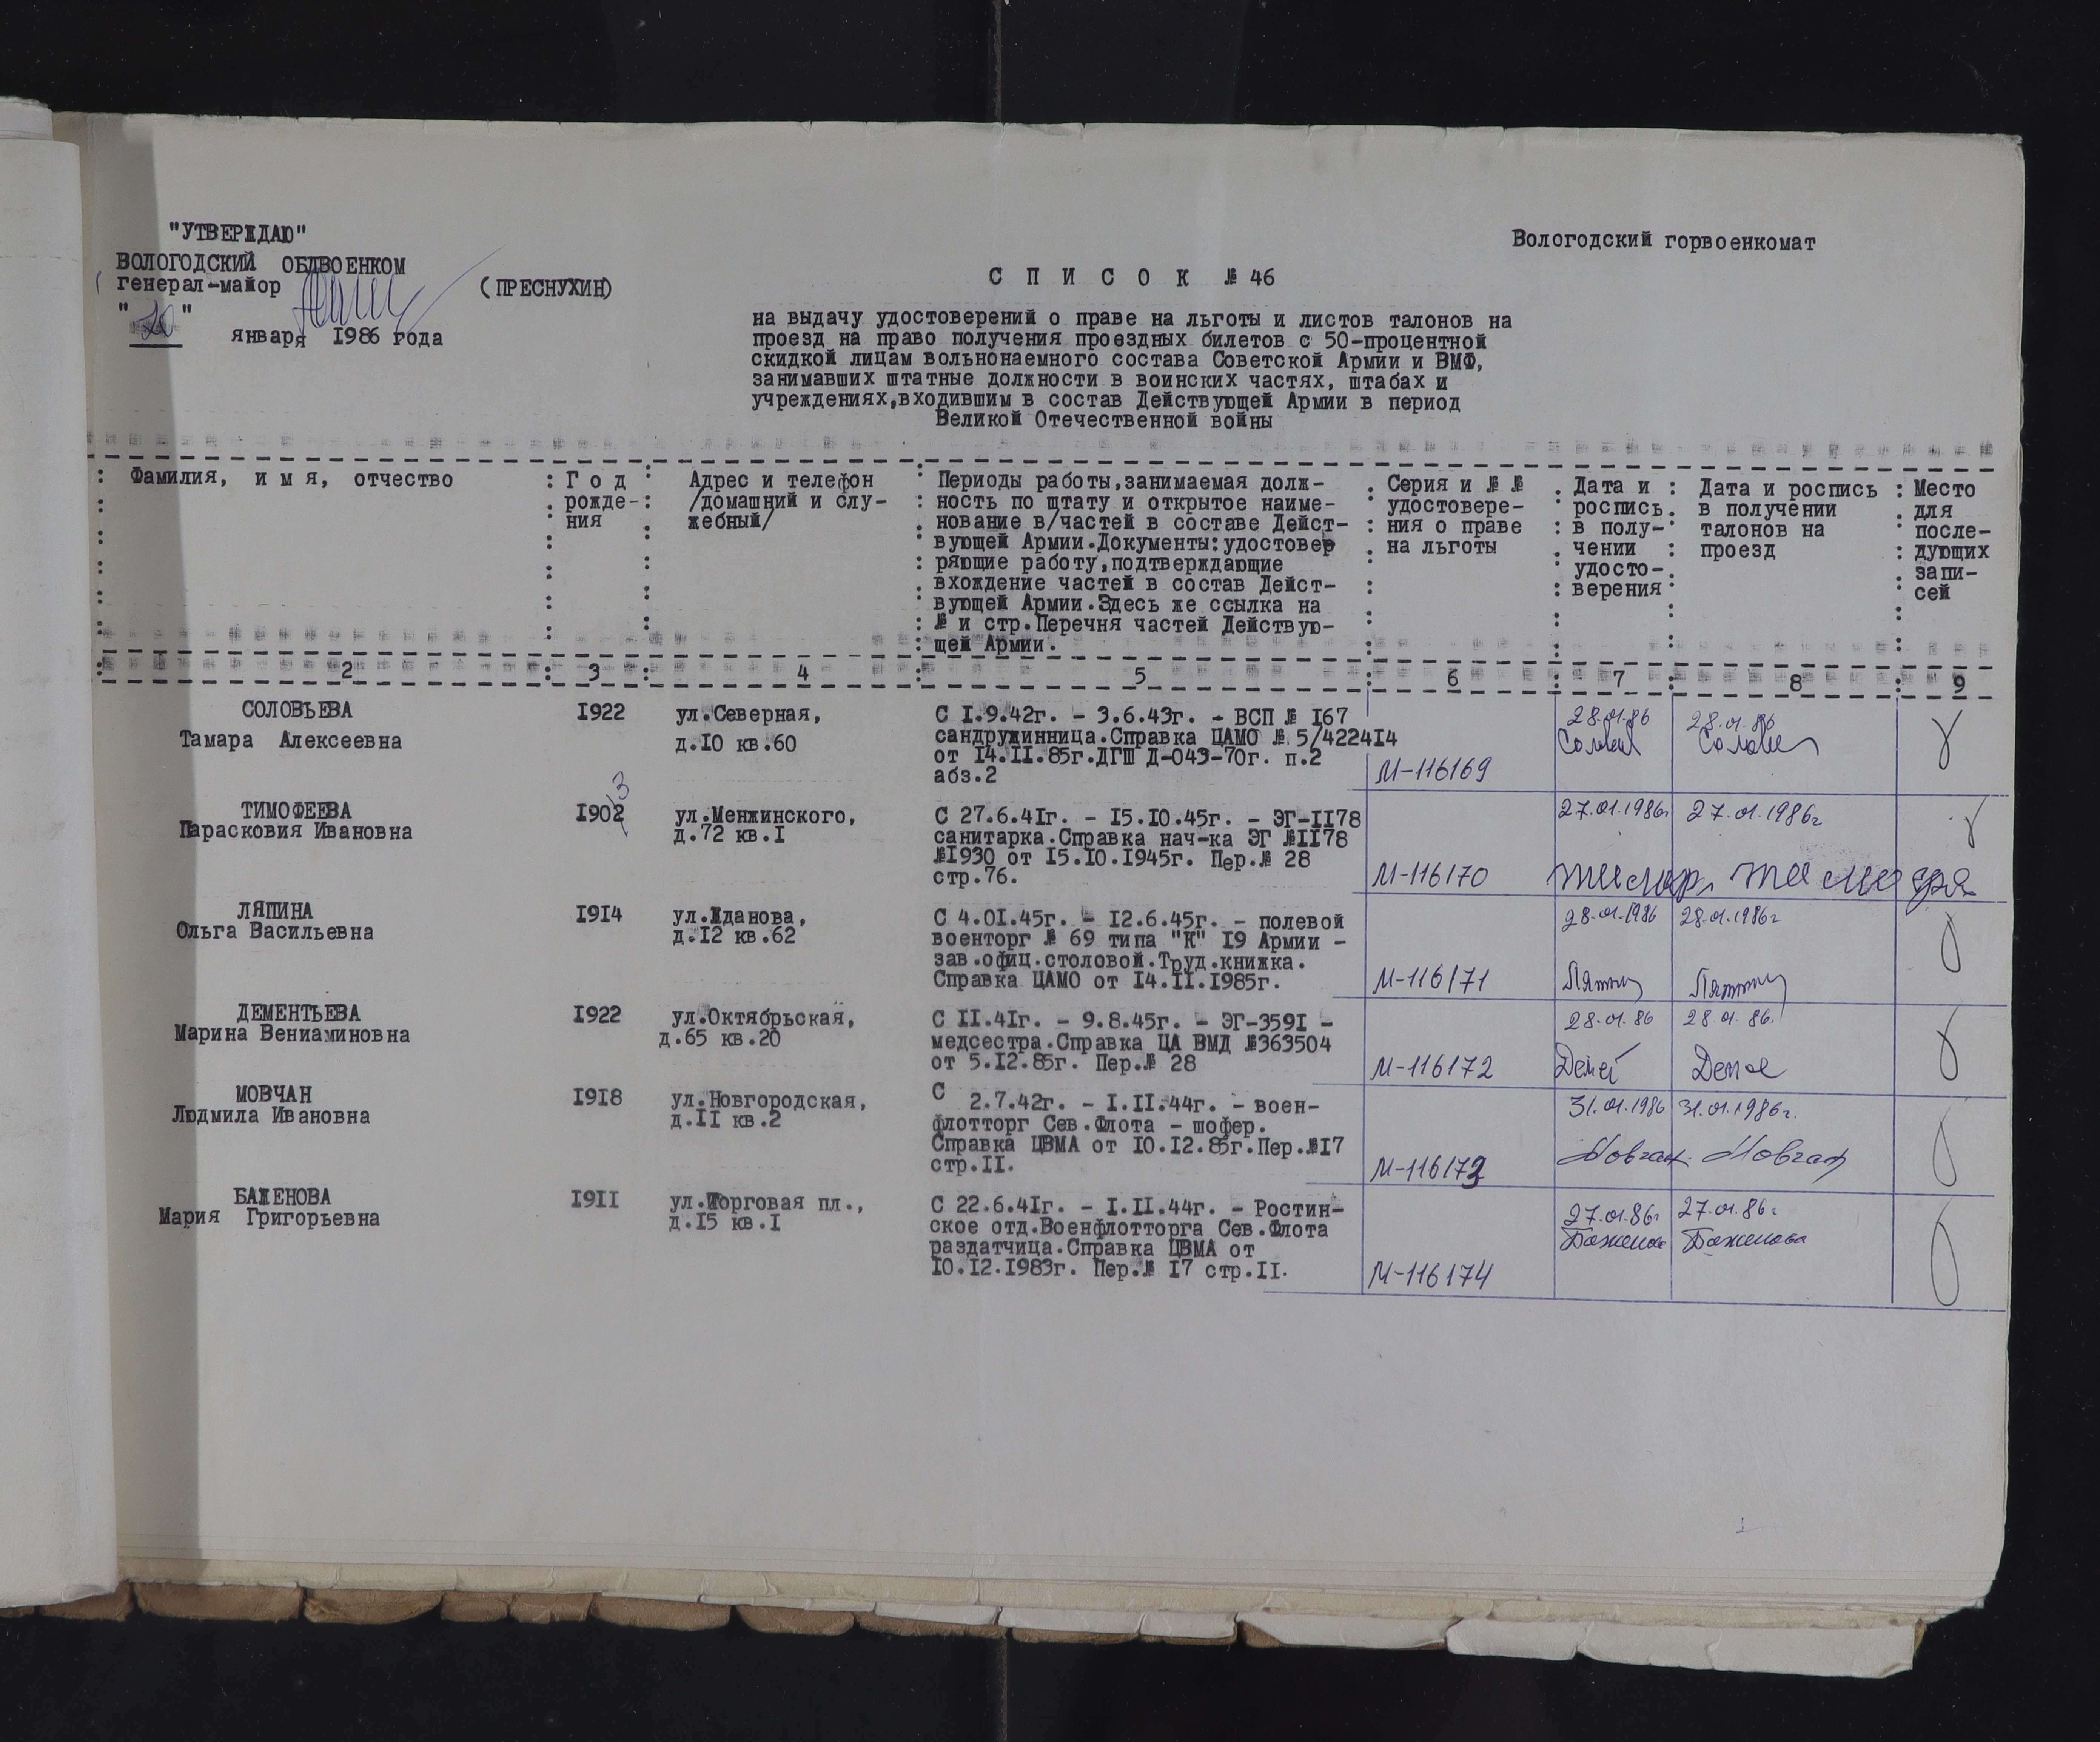 "УТВЕРЖДАЮ"
ВОЛОГОДСКИЙ ОБЛВОЕНКОМ
генерал-майор (ПРЕСНУХИН)
"20" января 1986 года
Вологодский горвоенкомат
С П И С О К № 46
на выдачу удостоверений о праве на льготы и листов талонов на
проезд на право получения проездных билетов с 50-процентной
скидкой лицам вольнонаемного состава Советской Армии и ВМФ,
занимавших штатные должности в воинских частях, штабах и
учреждениях,входившим в состав Действующей Армии в период
Великой Отечественной войны
Фамилия, и м я, отчество
Г о д
рожде-
ния
Адрес и телефон
/домашний и слу-
жебный/
Периоды работы,занимаемая долж-
ность по штату и открытое наиме-
нование в/частей в составе Дейст-
вующей Армии.Документы:удостовер
ряющие работу,подтверждающие
вхождение частей в состав Дейст-
вующей Армии.Здесь же ссылка на
№ и стр.Перечня частей Действую-
щей Армии.
Серия и № №
удостовере-
ния о праве
на льготы
Дата и
роспись
в полу-
чении
удосто-
верения
Дата и роспись
в получении
талонов на
проезд
Место
для
после-
дующих
запи-
сей
2 3 4 5 6 7 8 9
СОЛОВЬЕВА
Тамара Алексеевна
I922
ул.Северная,
д.I0 кв.60
С I.9.42г. - 3.6.43г. - ВСП № I67
сандружинница.Справка ЦАМО № 5/4224I4
от I4.II.85г.ДГШ Д-043-70г. п.2
абз.2
М-116169
28.01.86
28.01.86
ТИМОФЕЕВА
Парасковия Ивановна
I902
13
ул.Менжинского,
д.72 кв.I
С 27.6.4Iг. - I5.I0.45г. - ЭГ-II78
санитарка.Справка нач-ка ЭГ №II78
№I930 от I5.I0.I945г. Пер.№ 28
стр.76.
М-116170
27.01.1986г
27.01.1986г
ЛЯПИНА
Ольга Васильевна
I9I4
ул.Жданова,
д.I2 кв.62
С 4.0I.45г. - I2.6.45г. - полевой
военторг № 69 типа "К" I9 Армии -
зав.офиц.столовой.Труд.книжка.
Справка ЦАМО от I4.II.I985г.
М-116171
28.01.1986
28.01.1986г
ДЕМЕНТЬЕВА
Марина Вениаминовна
I922
ул.Октябрьская,
д.65 кв.20
С II.4Iг. - 9.8.45г. - ЭГ-359I -
медсестра.Справка ЦА ВМД №363504
от 5.I2.85г. Пер.№ 28
М-116172
28.01.86
28.01.86.
МОВЧАН
Людмила Ивановна
I9I8
ул.Новгородская,
д.II кв.2
С 2.7.42г. - I.II.44г. - воен-
флотторг Сев.Флота - шофер.
Справка ЦВМА от I0.I2.85г.Пер.№I7
стр.II.
М-116173
31.01.1986
31.01.1986г.
Мовчан
Мовчан
БАЖЕНОВА
Мария Григорьевна
I9II
ул.Торговая пл.,
д.I5 кв.I
С 22.6.4Iг. - I.II.44г. - Ростин-
ское отд.Военфлотторга Сев.Флота
раздатчица.Справка ЦВМА от
I0.I2.I983г. Пер.№ I7 стр.II.
М-116174
27.01.86г
27.01.86г
Баженова
Баженова